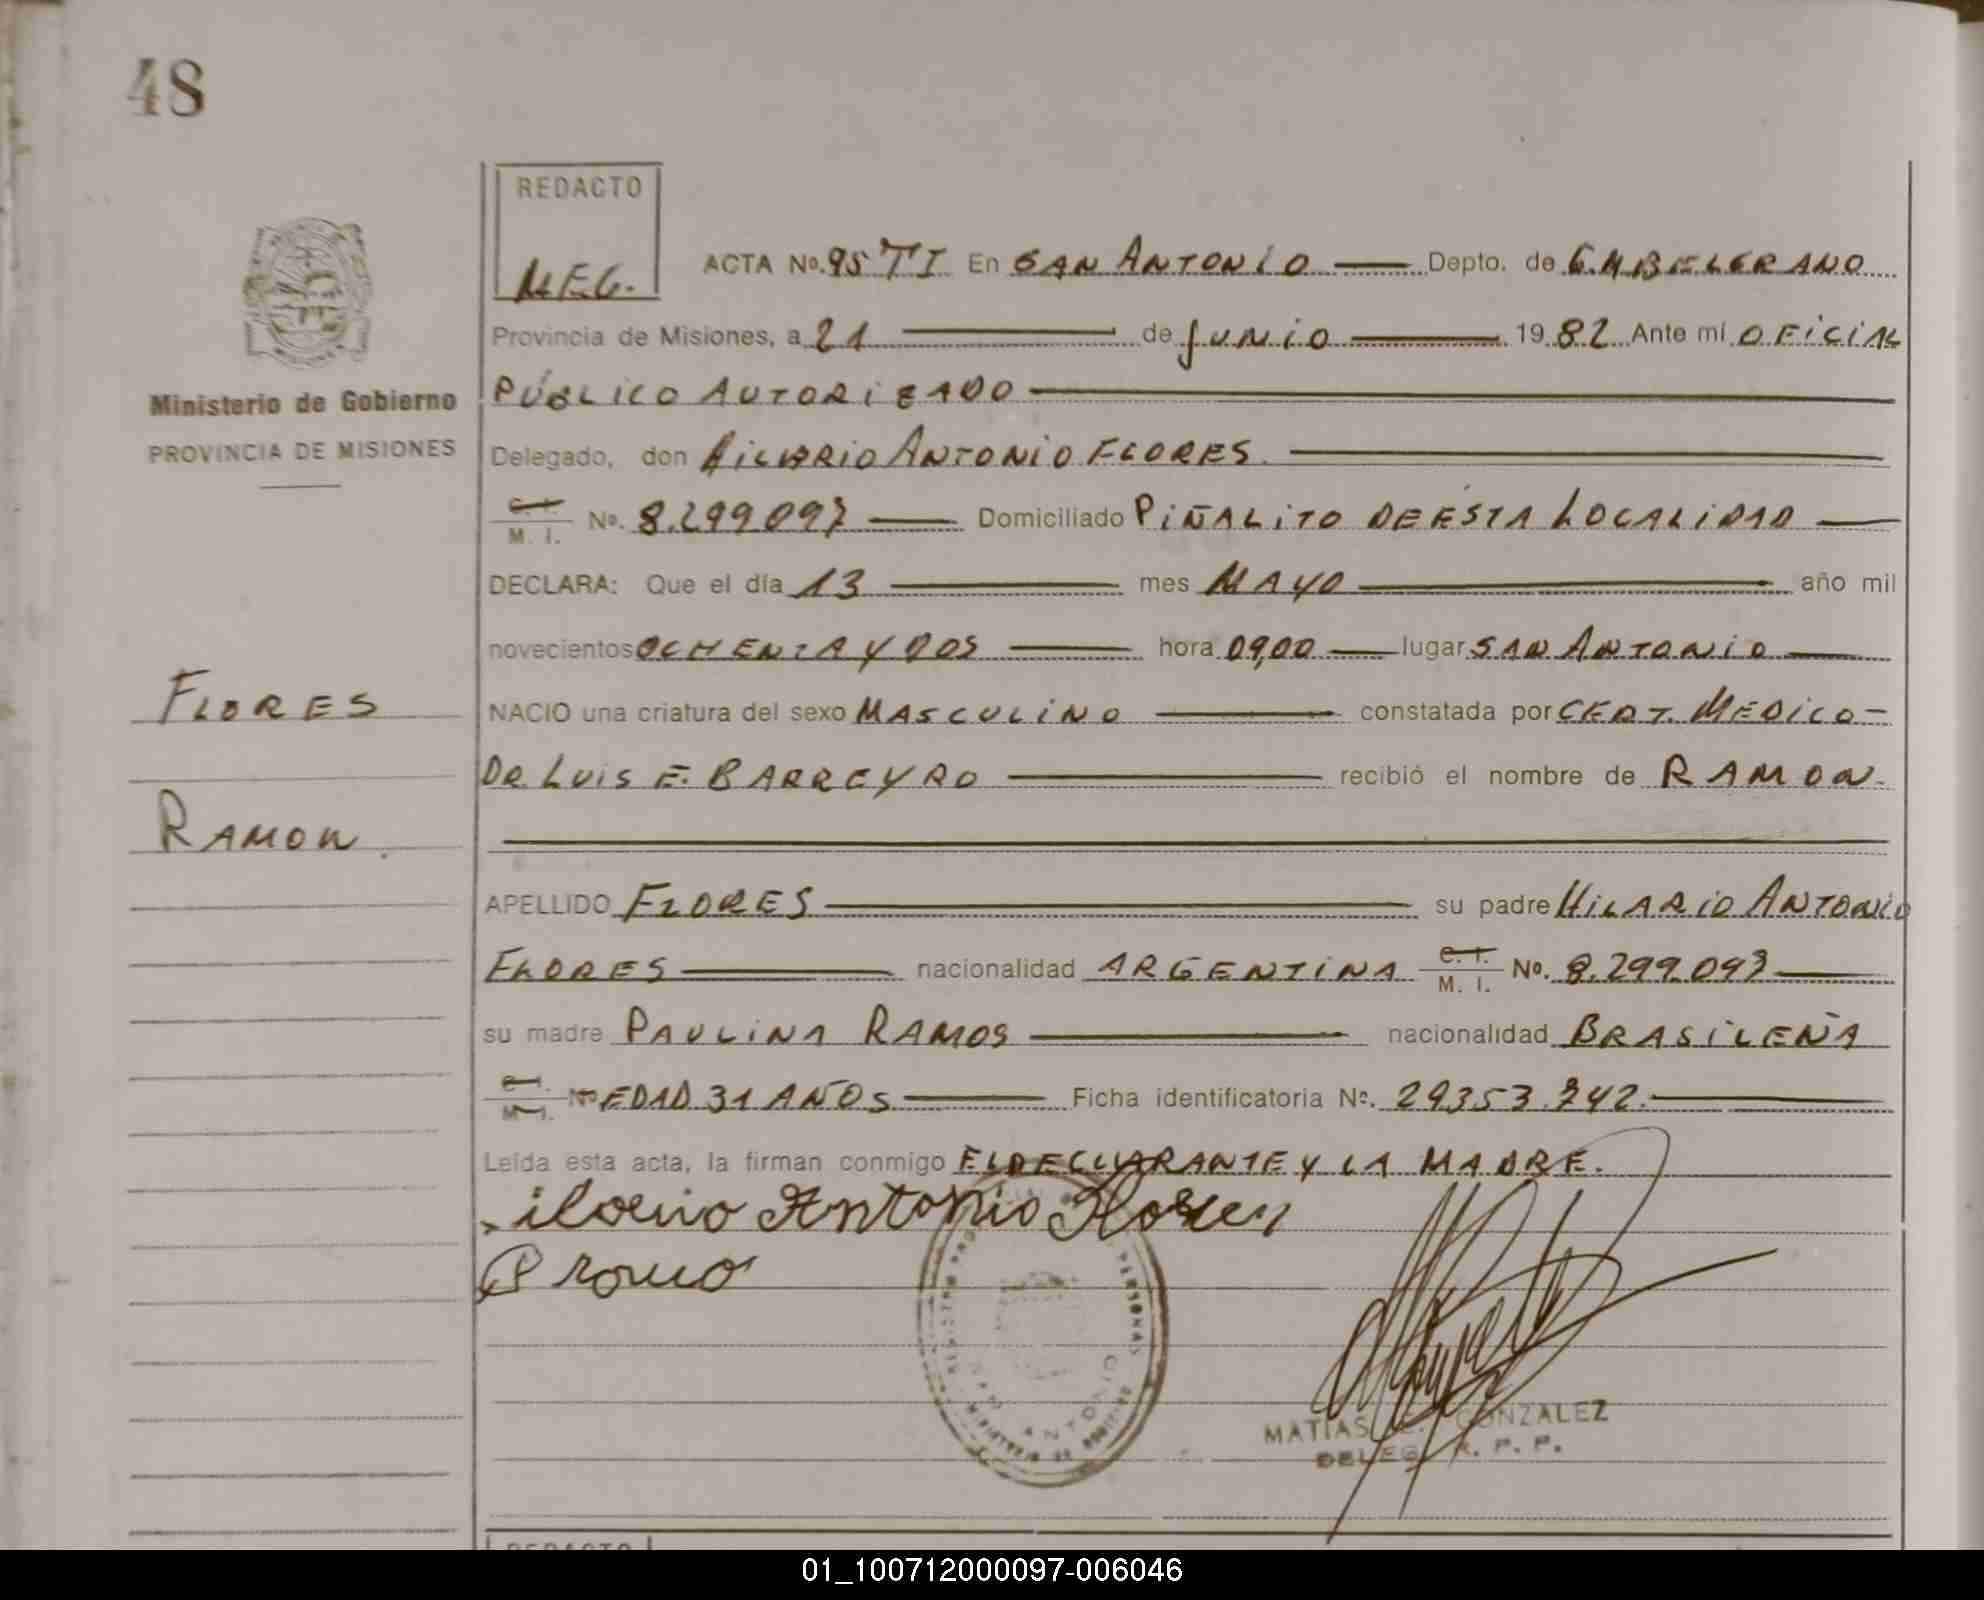 48
REDACTO
MEG.
ACTA No. 95 TI En SAN ANTONIO Depto. de G.M BELGRANO
Provincia de Misiones, a 21 de JUNIO 1982 Ante mí OFICIAL
PÚBLICO AUTORIZADO
Ministerio de Gobierno
PROVINCIA DE MISIONES
Delegado, don HILARIO ANTONIO FLORES.
C. I. M. I. No. 8.299.093 Domiciliado PIÑALITO DE ESTA LOCALIDAD
DECLARA: Que el día 13 mes MAYO año mil
novecientos OCHENTA Y DOS hora 09,00 lugar SAN ANTONIO
FLORES
NACIO una criatura del sexo MASCULINO constatada por CERT. MEDICO-
DR. LUIS E. BARREYRO recibió el nombre de RAMON-
RAMON.
APELLIDO FLORES su padre HILARIO ANTONIO
FLORES nacionalidad ARGENTINA C. I. M. I. No. 8.299.093
su madre PAULINA RAMOS nacionalidad BRASILEÑA
M. I. No EDAD 31 AÑOS Ficha identificatoria No. 29353.342.
Leída esta acta, la firman conmigo EL DECLARANTE Y LA MADRE.
Antonio Flores
SAN ANTONIO
MATIAS GONZALEZ
DELEG. R. P. P.
REDACTO
01_100712000097-006046